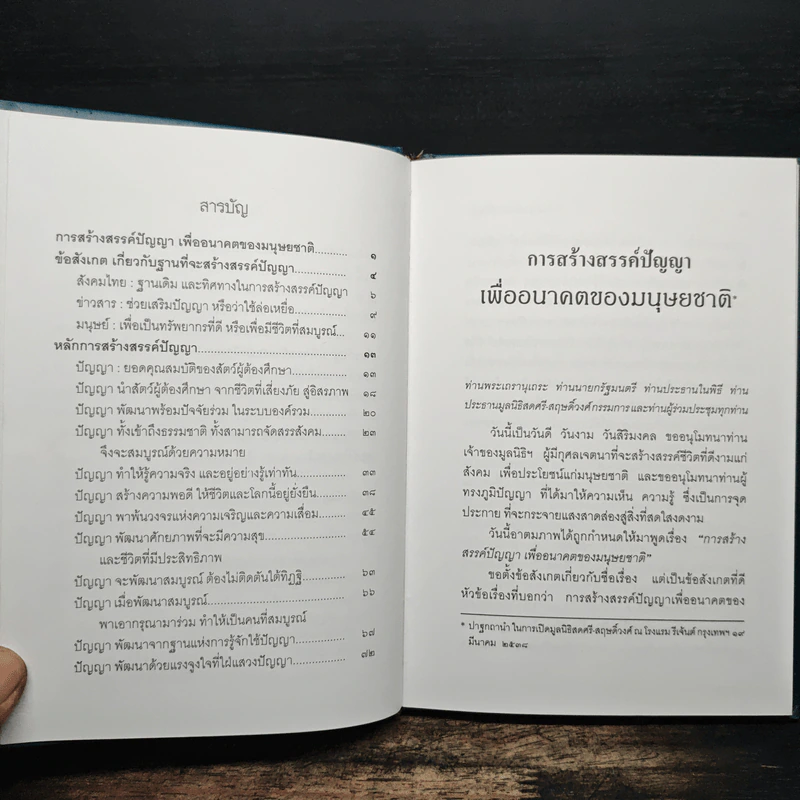 สารบัญ
การสร้างสรรค์ปัญญา เพื่ออนาคตของมนุษยชาติ.......... ๑
ข้อสังเกต เกี่ยวกับฐานที่จะสร้างสรรค์ปัญญา................ ๔
สังคมไทย : ฐานเดิม และทิศทางในการสร้างสรรค์ปัญญา ๖
ข่าวสาร : ช่วยเสริมปัญญา หรือว่าใช้ล่อเหยื่อ................ ๙
มนุษย์ : เพื่อเป็นทรัพยากรที่ดี หรือเพื่อมีชีวิตที่สมบูรณ์... ๑๑
หลักการสร้างสรรค์ปัญญา................................ ๑๓
ปัญญา : ยอดคุณสมบัติของสัตว์ผู้ต้องศึกษา................ ๑๓
ปัญญา นำสัตว์ผู้ต้องศึกษา จากชีวิตที่เสี่ยงภัย สู่อิสรภาพ ๑๘
ปัญญา พัฒนาพร้อมปัจจัยร่วม ในระบบองค์รวม............ ๒๐
ปัญญา ทั้งเข้าถึงธรรมชาติ ทั้งสามารถจัดสรรสังคม........ ๒๓
จึงจะสมบูรณ์ด้วยความหมาย
ปัญญา ทำให้รู้ความจริง และอยู่อย่างรู้เท่าทัน............ ๓๓
ปัญญา สร้างความพอดี ให้ชีวิตและโลกนี้อยู่ยั่งยืน........ ๓๘
ปัญญา พาพ้นวงจรแห่งความเจริญและความเสื่อม............ ๔๕
ปัญญา พัฒนาศักยภาพที่จะมีความสุข.................... ๕๔
และชีวิตที่มีประสิทธิภาพ
ปัญญา จะพัฒนาสมบูรณ์ ต้องไม่ติดตันใต้ทิฏฐิ............ ๖๓
ปัญญา เมื่อพัฒนาสมบูรณ์............................ ๖๖
พาเอากรุณามาร่วม ทำให้เป็นคนที่สมบูรณ์
ปัญญา พัฒนาจากฐานแห่งการรู้จักใช้ปัญญา................ ๖๗
ปัญญา พัฒนาด้วยแรงจูงใจที่ใฝ่แสวงปัญญา................ ๗๒
การสร้างสรรค์ปัญญา
เพื่ออนาคตของมนุษยชาติ*
ท่านพระเถรานุเถระ ท่านนายกรัฐมนตรี ท่านประธานในพิธี ท่าน
ประธานมูลนิธิสดศรี-สฤษดิ์วงศ์ กรรมการและท่านผู้ร่วมประชุมทุกท่าน
วันนี้เป็นวันดี วันงาม วันสิริมงคล ขออนุโมทนาท่าน
เจ้าของมูลนิธิฯ ผู้มีกุศลเจตนาที่จะสร้างสรรค์ชีวิตที่ดีงามแก่
สังคม เพื่อประโยชน์แก่มนุษยชาติ และขออนุโมทนาท่านผู้
ทรงภูมิปัญญา ที่ได้มาให้ความเห็น ความรู้ ซึ่งเป็นการจุด
ประกาย ที่จะกระจายแสงสาดส่องสู่สิ่งที่สดใสงดงาม
วันนี้อาตมภาพได้ถูกกำหนดให้มาพูดเรื่อง "การสร้าง
สรรค์ปัญญา เพื่ออนาคตของมนุษยชาติ"
ขอตั้งข้อสังเกตเกี่ยวกับชื่อเรื่อง แต่เป็นข้อสังเกตที่ดี
หัวข้อเรื่องที่บอกว่า การสร้างสรรค์ปัญญาเพื่ออนาคตของ
* ปาฐกถานำ ในการเปิดมูลนิธิสดศรี-สฤษดิ์วงศ์ ณ โรงแรม รีเจ้นต์ กรุงเทพฯ ๑๙
มีนาคม ๒๕๓๘